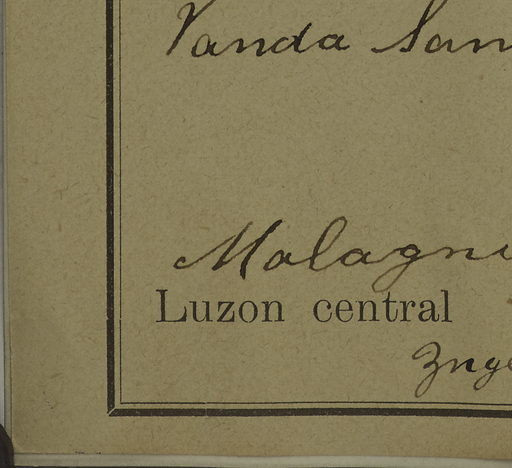 Vanda San
Malagni
Luzon central
Znge